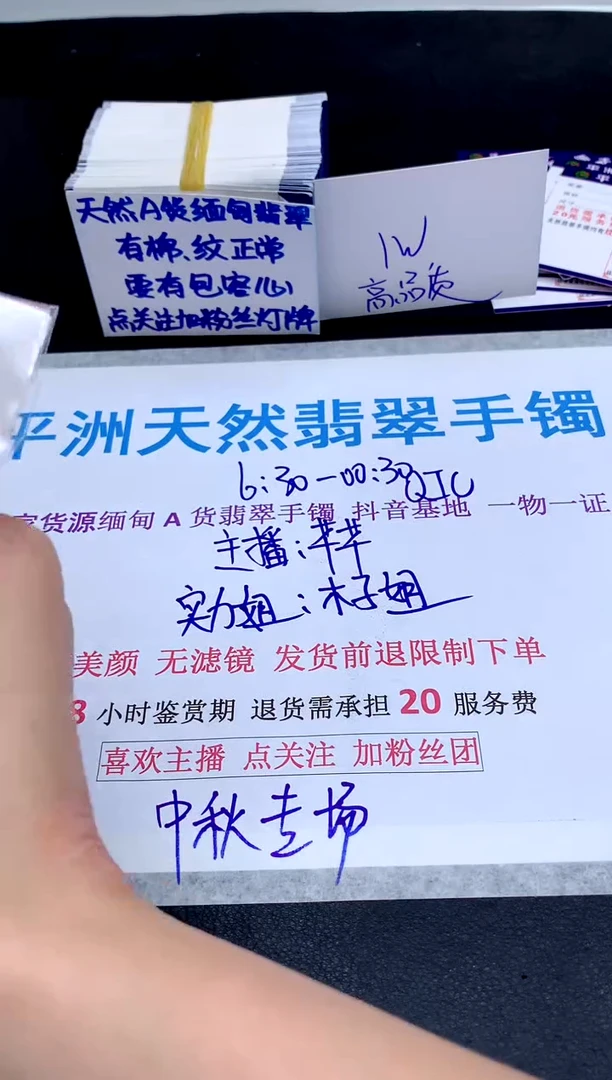 天然A货缅甸翡翠
有棉、纹正常
要有包容心
点关注加粉丝灯牌
1W
高品质
平洲天然翡翠手镯
6:30-00:30 QIC
货源缅甸 A 货翡翠手镯 抖音基地 一物一证
主播:芊芊
实力姐:木子姐
美颜 无滤镜 发货前退限制下单
8 小时鉴赏期 退货需承担 20 服务费
喜欢主播 点关注 加粉丝团
中秋专场